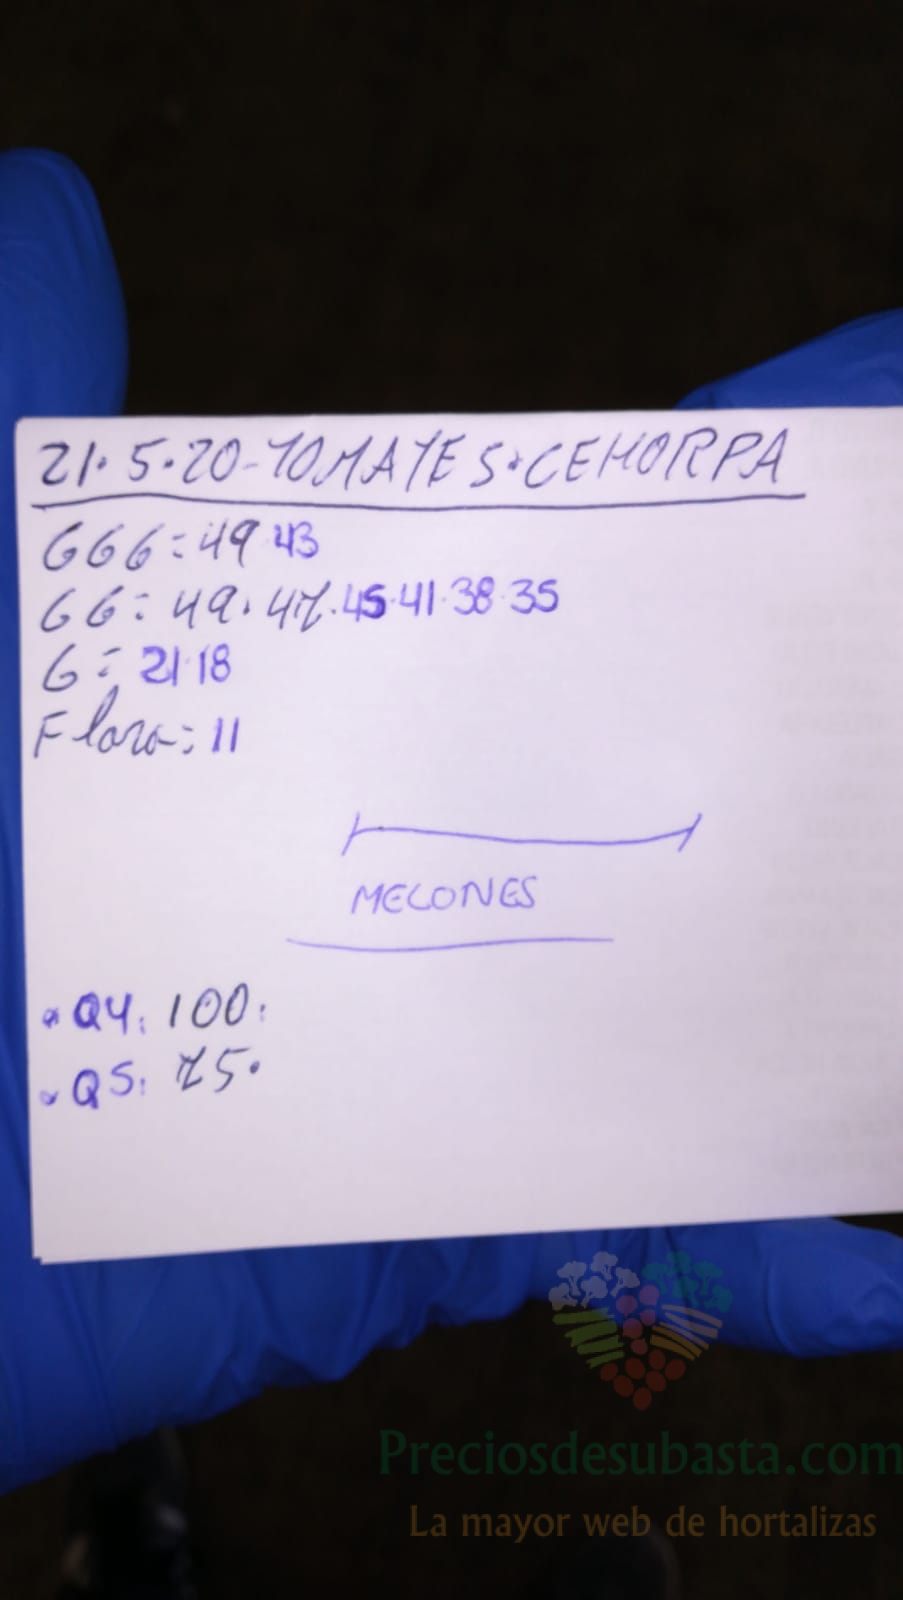 21·5·20-TOMATES·CEHORPA
GGG=49·43
GG=49·47·45·41·38·35
G=21·18
Flora=11
MELONES
Q4: 100.
Q5: 75.
Preciosdesubasta.com
La mayor web de hortalizas